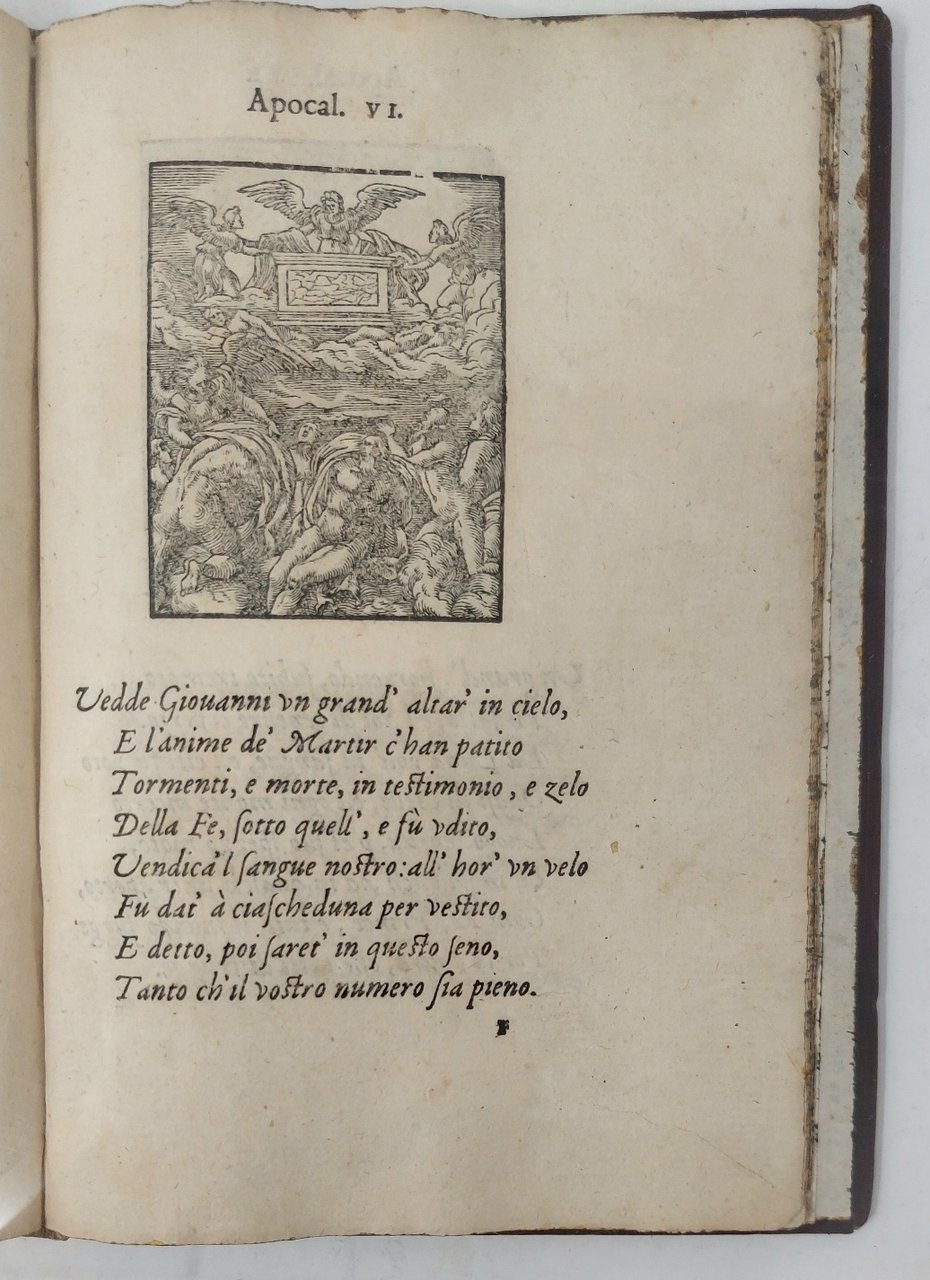 Apocal. VI.
Vedde Giouanni vn grand' altar' in cielo,
E l'anime de' Martir c'han patito
Tormenti, e morte, in testimonio, e zelo
Della Fe, ſotto quell', e fù vdito,
Vendica'l ſangue nostro: all' hor' vn velo
Fù dat' à ciaſcheduna per vestito,
E detto, poi ſaret' in questo ſeno,
Tanto ch'il vostro numero ſia pieno.
F